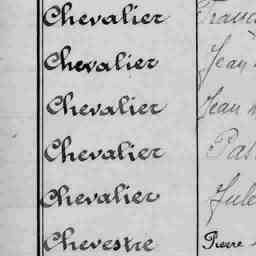 Chevalier
Chevalier Jean
Chevalier Jean
Chevalier
Chevalier
Chevestre Pierre